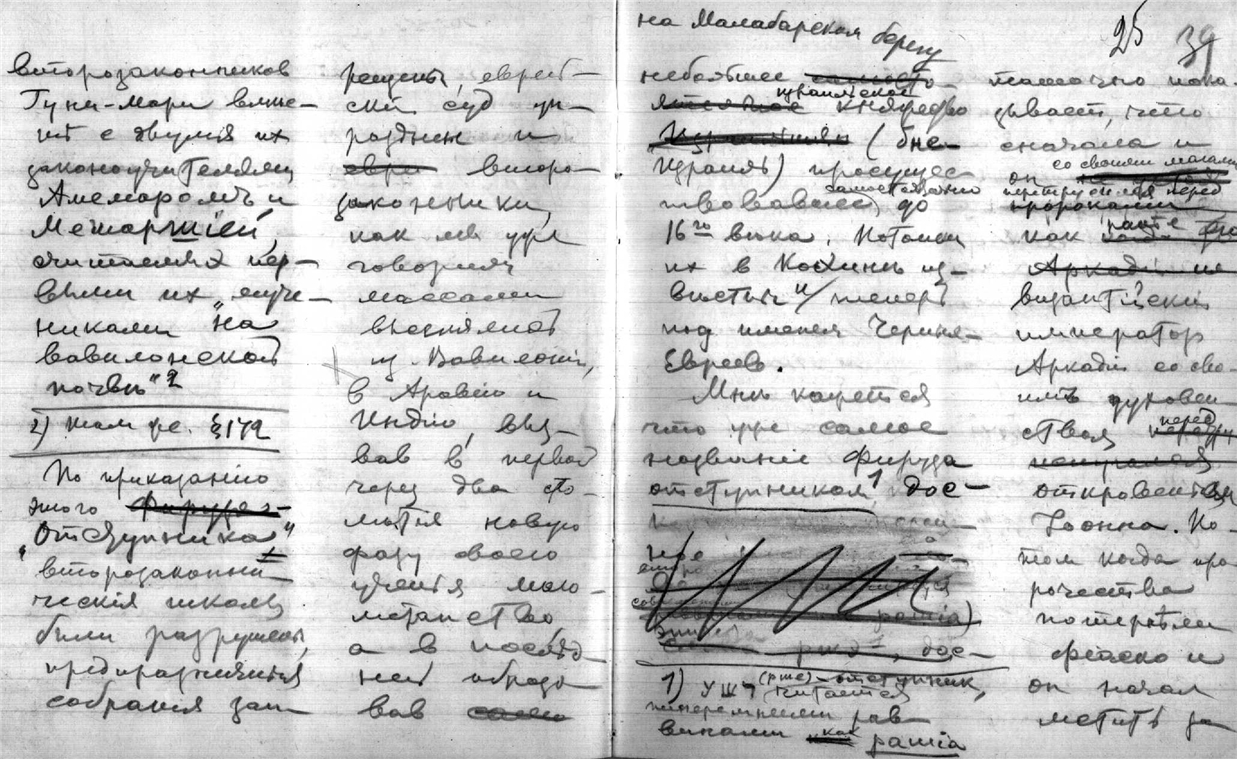 второзаконников
Гуна-Мари вме-
сте с двумя их
законоучителями
Амемаромъ и
Мешаршіей,
считаемыя пер-
выми их „мучe-
никами на
вавилонской
почвѣ" 2
2) Там же. § 172
По приказанію
этого
„Отступника"
второзаконни-
ческія школы
были разрушены,
предпраздничныя
собранія зап-
рещены, еврей-
скій суд уп-
разднен и
второ-
законники,
как мы уже
говорили
массами
выселялись
из Вавилоніи,
в Аравію и
Индію, выз-
вав в первой
через два сто-
лѣтія новую
фазу своего
ученія маго-
метанство
а в послѣд-
ней образо-
вав
на Малабарском берегу
25 39
небольшее
израильское
княжество
(бне-
Израиль) просущес-
самостоятельно
твовавшее, до
16го вѣка. Потомки
их в Кохинѣ из-
вѣстны и теперь
под именем Черных
Евреев.
Мнѣ кажется
что уже самое
названіе Фируза
отступником 1 дос-
дос-
1) УЖЧ (рше) – отступник,
читается
теперешними рав-
винами как рашіа
таточно пока-
зывает, что
сначала и
со своими магами
он
перед
как ранѣе
византійскій
император
Аркадій со сво-
имъ духовен-
ством перед
откровеніем
Іоанна. По-
том когда про-
рочества
потерпѣли
фіаско и
он начал
мстить за